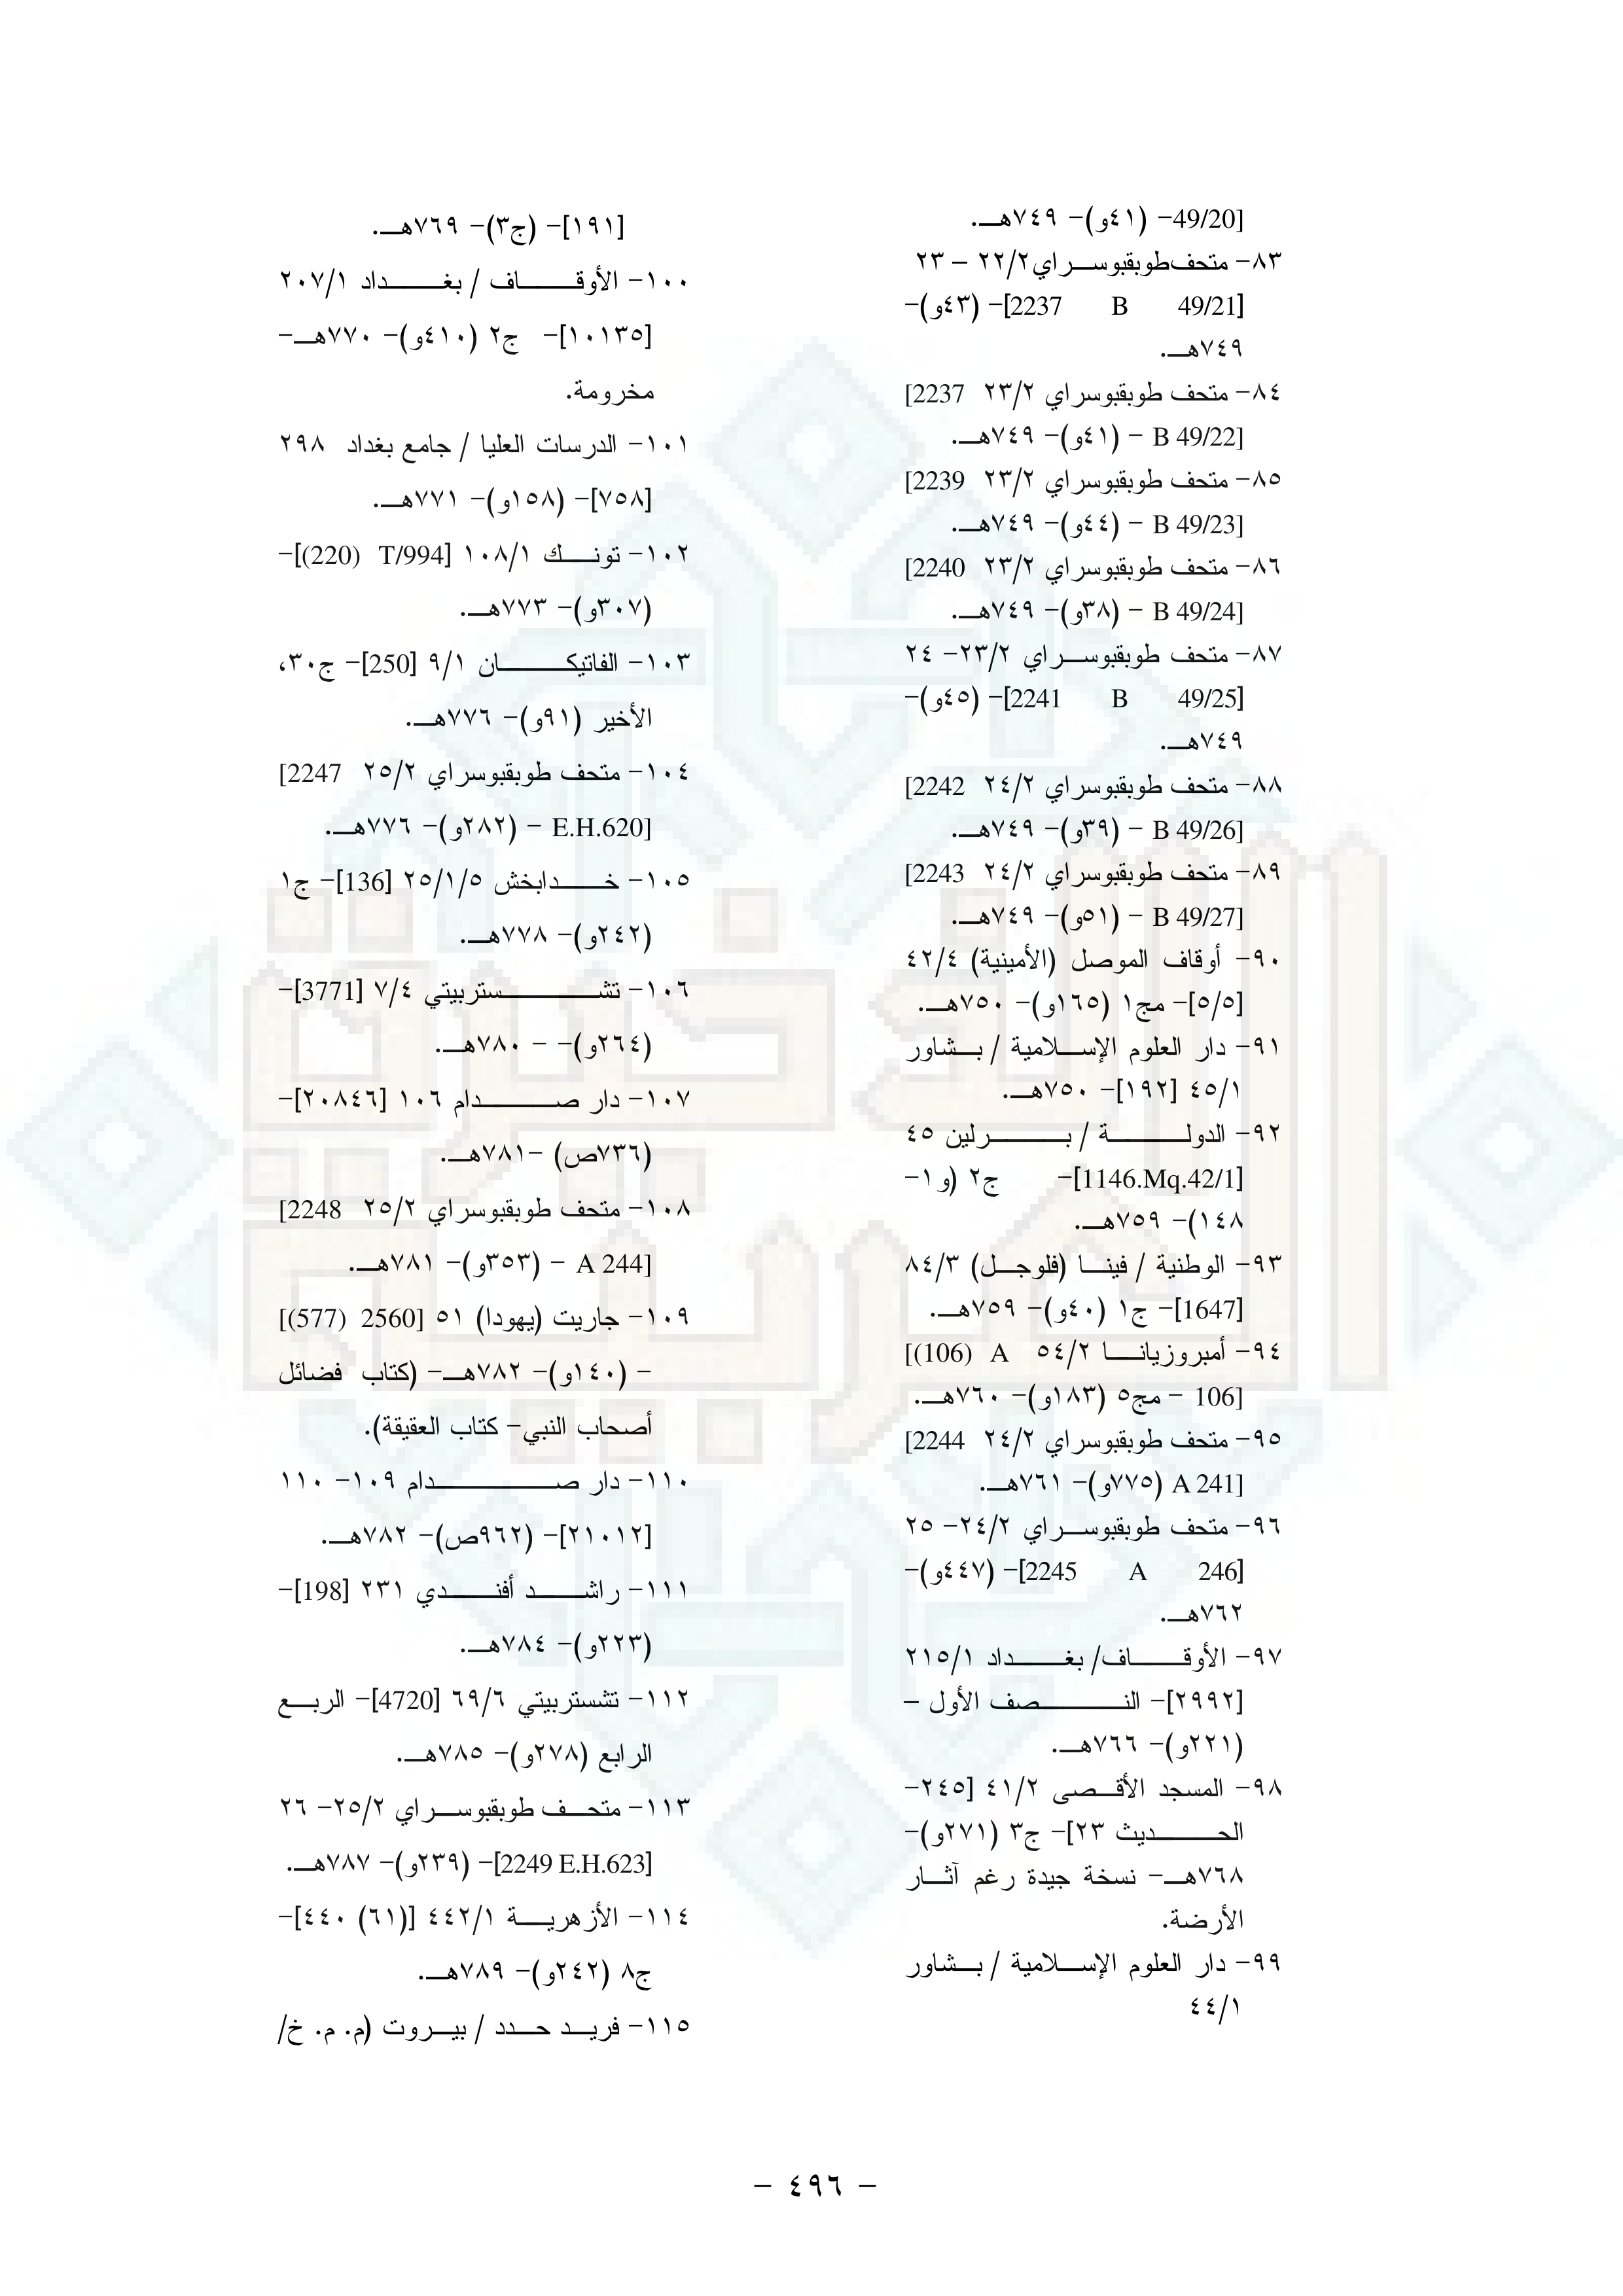 49/20]- (٤١و)- ٧٤٩هـ.
٨٣- متحف طوبقبوسراي ٢٢/٢ - ٢٣
[2237 B 49/21]- (٤٣و)-
٧٤٩هـ.
٨٤- متحف طوبقبوسراي ٢٣/٢ [2237
B 49/22] - (٤١و)- ٧٤٩هـ.
٨٥- متحف طوبقبوسراي ٢٣/٢ [2239
B 49/23] - (٤٤و)- ٧٤٩هـ.
٨٦- متحف طوبقبوسراي ٢٣/٢ [2240
B 49/24] - (٣٨و)- ٧٤٩هـ.
٨٧- متحف طوبقبوسراي ٢٣/٢- ٢٤
[2241 B 49/25]- (٤٥و)-
٧٤٩هـ.
٨٨- متحف طوبقبوسراي ٢٤/٢ [2242
B 49/26] - (٣٩و)- ٧٤٩هـ.
٨٩- متحف طوبقبوسراي ٢٤/٢ [2243
B 49/27] - (٥١و)- ٧٤٩هـ.
٩٠- أوقاف الموصل (الأمينية) ٤٢/٤
[٥/٥]- مج١ (١٦٥و)- ٧٥٠هـ.
٩١- دار العلوم الإسلامية / بشاور
٤٥/١ [١٩٢]- ٧٥٠هـ.
٩٢- الدولة / برلين ٤٥
[1146.Mq.42/1]- ج٢ (و١-
١٤٨)- ٧٥٩هـ.
٩٣- الوطنية / فينا (فلوجل) ٨٤/٣
[1647]- ج١ (٤٠و)- ٧٥٩هـ.
٩٤- أمبروزيانا ٥٤/٢ [(106) A
106] - مج٥ (١٨٣و)- ٧٦٠هـ.
٩٥- متحف طوبقبوسراي ٢٤/٢ [2244
A 241] (٧٧٥و)- ٧٦١هـ.
٩٦- متحف طوبقبوسراي ٢٤/٢- ٢٥
[2245 A 246]- (٤٤٧و)-
٧٦٢هـ.
٩٧- الأوقاف/ بغداد ٢١٥/١
[٢٩٩٢]- النصف الأول -
(٢٢١و)- ٧٦٦هـ.
٩٨- المسجد الأقصى ٤١/٢ [٢٤٥-
الحديث ٢٣]- ج٣ (٢٧١و)-
٧٦٨هـ- نسخة جيدة رغم آثار
الأرضة.
٩٩- دار العلوم الإسلامية / بشاور
٤٤/١
[١٩١]- (ج٣)- ٧٦٩هـ.
١٠٠- الأوقاف / بغداد ٢٠٧/١
[١٠١٣٥]- ج٢ (٤١٠و)- ٧٧٠هـ-
مخرومة.
١٠١- الدرسات العليا / جامع بغداد ٢٩٨
[٧٥٨]- (١٥٨و)- ٧٧١هـ.
١٠٢- تونك ١٠٨/١ [T/994 (220)]-
(٣٠٧و)- ٧٧٣هـ.
١٠٣- الفاتيكان ٩/١ [250]- ج٣٠،
الأخير (٩١و)- ٧٧٦هـ.
١٠٤- متحف طوبقبوسراي ٢٥/٢ [2247
E.H.620] - (٢٨٢و)- ٧٧٦هـ.
١٠٥- خدابخش ٢٥/١/٥ [136]- ج١
(٢٤٢و)- ٧٧٨هـ.
١٠٦- تشستربيتي ٧/٤ [3771]-
(٢٦٤و)- - ٧٨٠هـ.
١٠٧- دار صدام ١٠٦ [٢٠٨٤٦]-
(٧٣٦ص) -٧٨١هـ.
١٠٨- متحف طوبقبوسراي ٢٥/٢ [2248
A 244] - (٣٥٣و)- ٧٨١هـ.
١٠٩- جاريت (يهودا) ٥١ [2560 (577)]
- (١٤٠و)- ٧٨٢هـ- (كتاب فضائل
أصحاب النبي- كتاب العقيقة).
١١٠- دار صدام ١٠٩- ١١٠
[٢١٠١٢]- (٩٦٢ص)- ٧٨٢هـ.
١١١- راشد أفندي ٢٣١ [198]-
(٢٢٣و)- ٧٨٤هـ.
١١٢- تشستربيتي ٦٩/٦ [4720]- الربع
الرابع (٢٧٨و)- ٧٨٥هـ.
١١٣- متحف طوبقبوسراي ٢٥/٢- ٢٦
[2249 E.H.623]- (٢٣٩و)- ٧٨٧هـ.
١١٤- الأزهرية ٤٤٢/١ [(٦١) ٤٤٠]-
ج٨ (٢٤٢و)- ٧٨٩هـ.
١١٥- فريد حدد / بيروت (م. م. خ/
- ٤٩٦ -